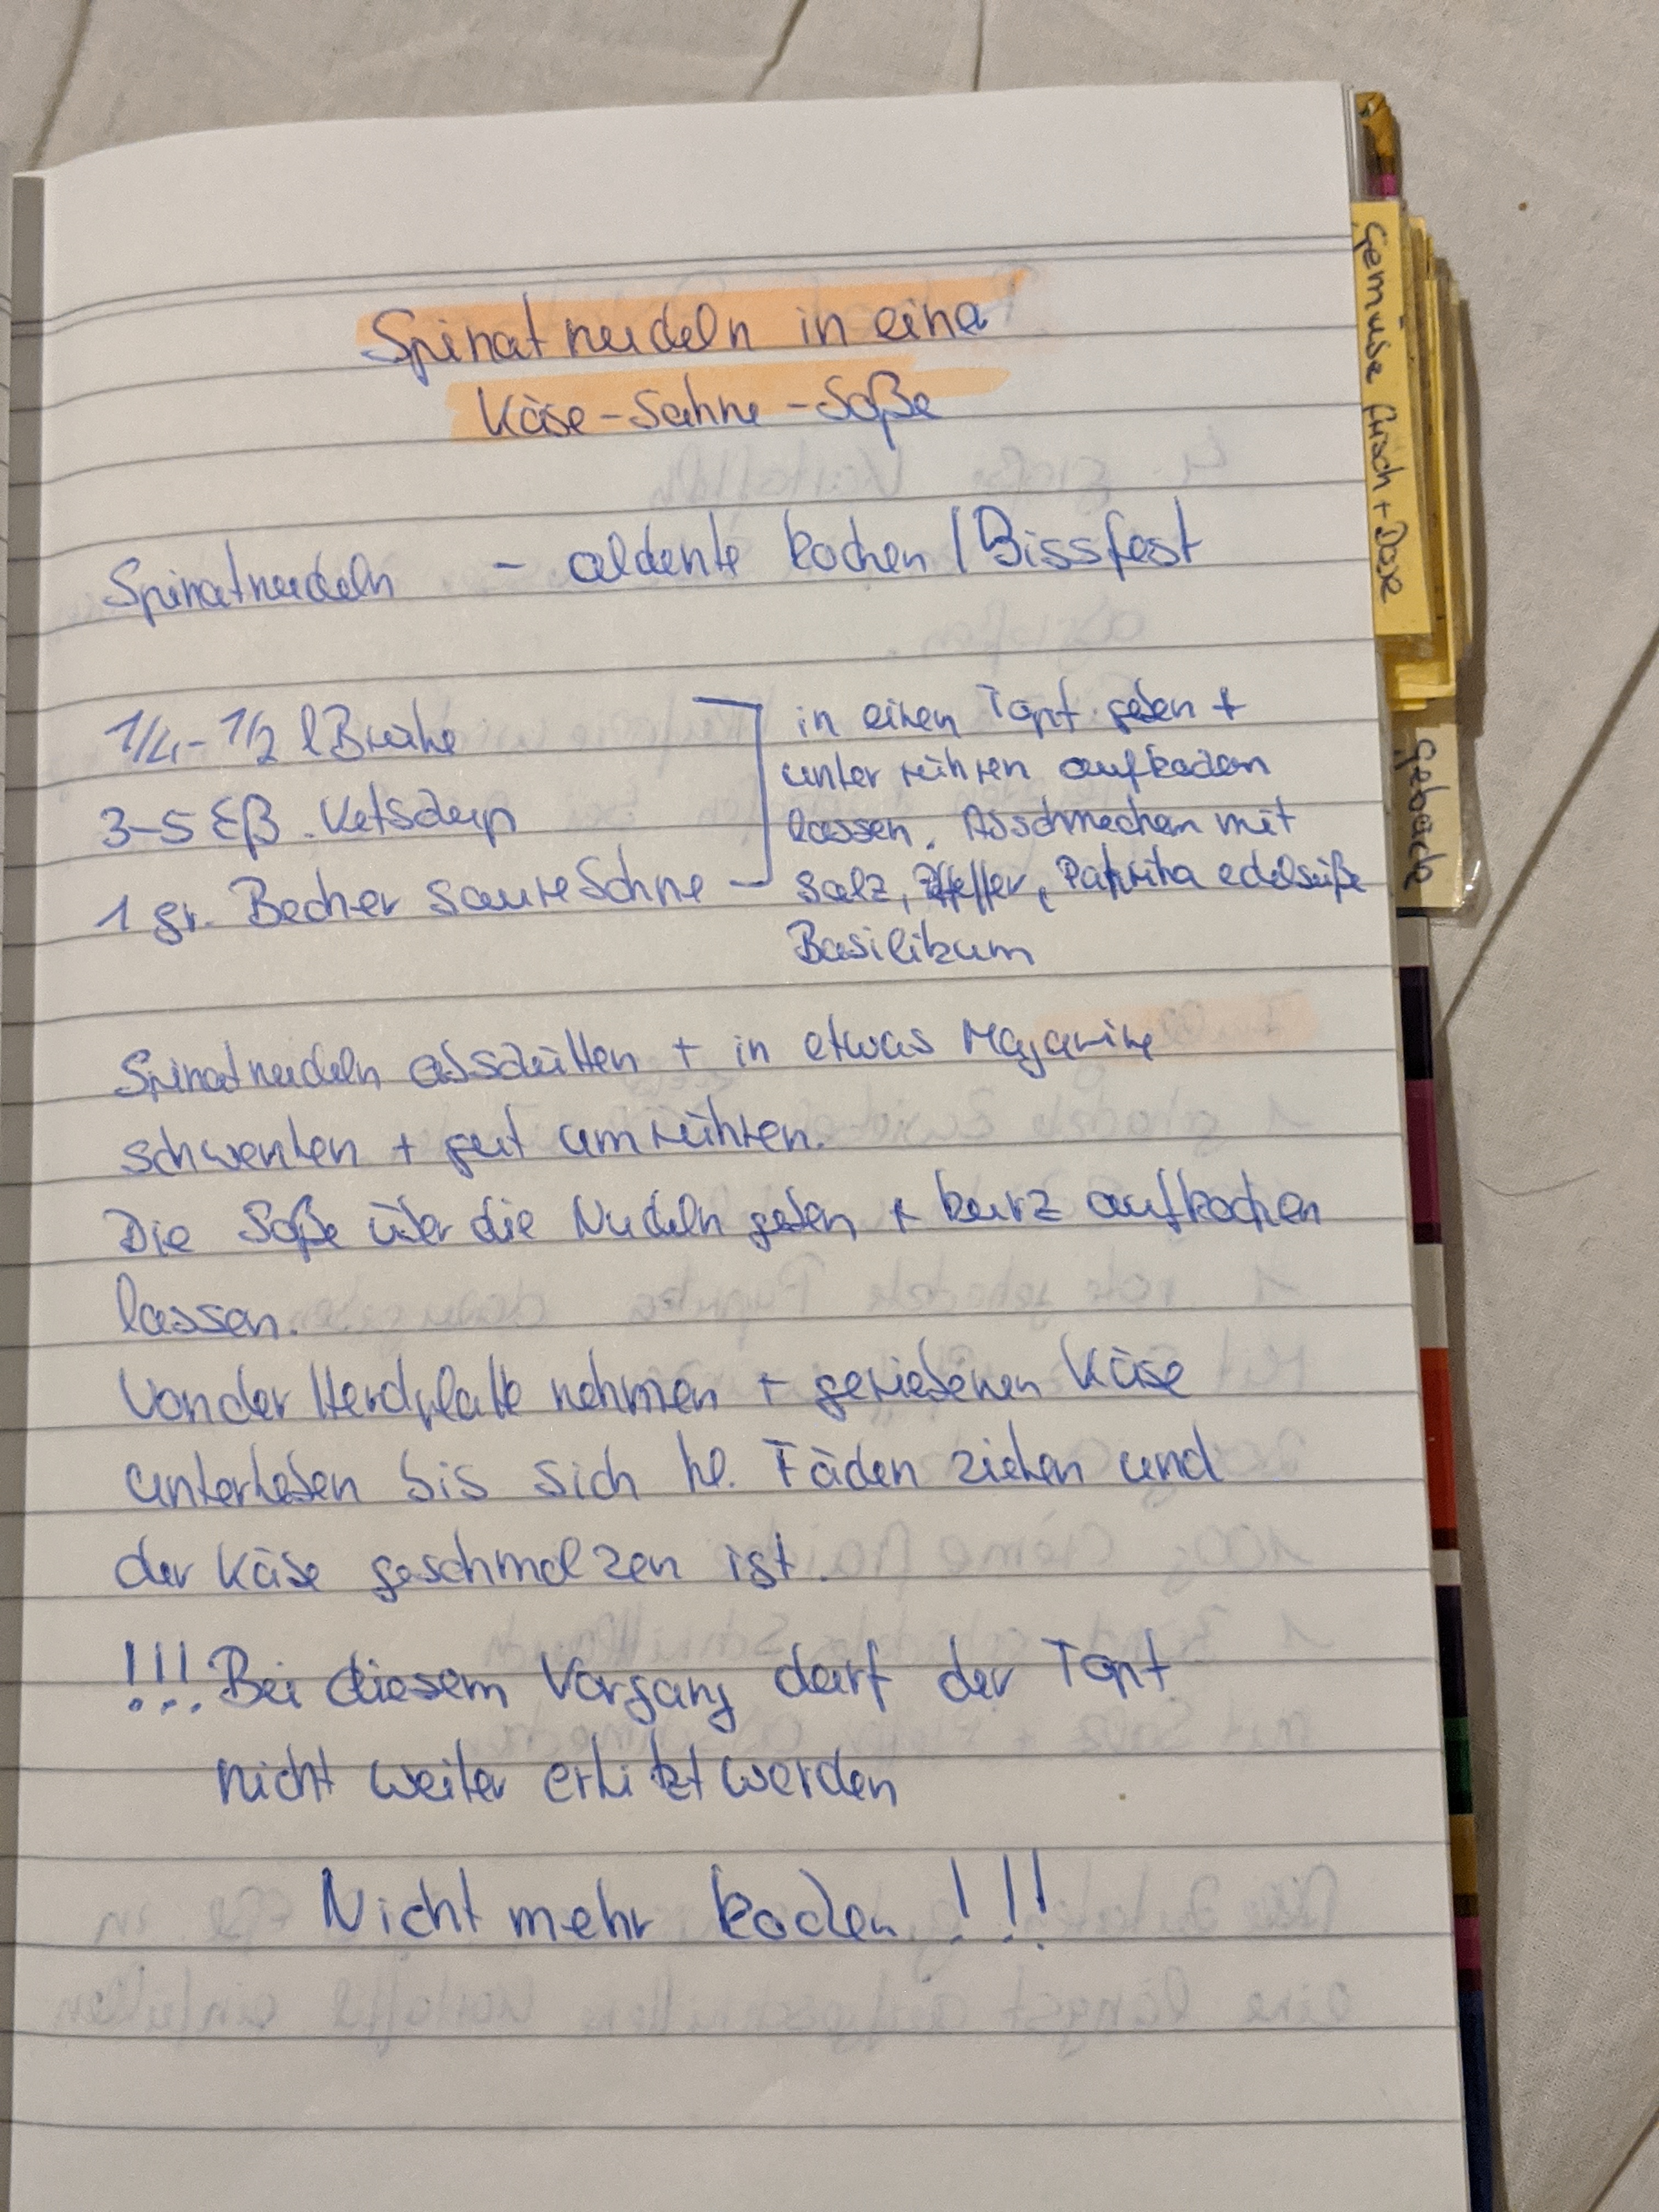 Spinatnudeln in einer
Käse-Sahne-Soße
Spinatnudeln - aldente kochen / Bissfest
1/4 - 1/2 l Brühe
3-5 Eßl. Ketschup
1 gr. Becher saure Sahne
in einen Topf geben +
unter rühren aufkochen
lassen. Abschmecken mit
Salz, Pfeffer, Paprika edelsüße
Basilikum
Spinatnudeln abschütten + in etwas Magarine
schwenken + gut umrühren.
Die Soße über die Nudeln geben + kurz aufkochen
lassen.
Von der Herdplatte nehmen + geriebenen Käse
unterheben bis sich kl. Fäden ziehen und
der Käse geschmolzen ist.
!!! Bei diesem Vorgang darf der Topf
nicht weiter erhitzt werden
Nicht mehr kochen !!!
Gemüse frisch + Dose
Gebäck